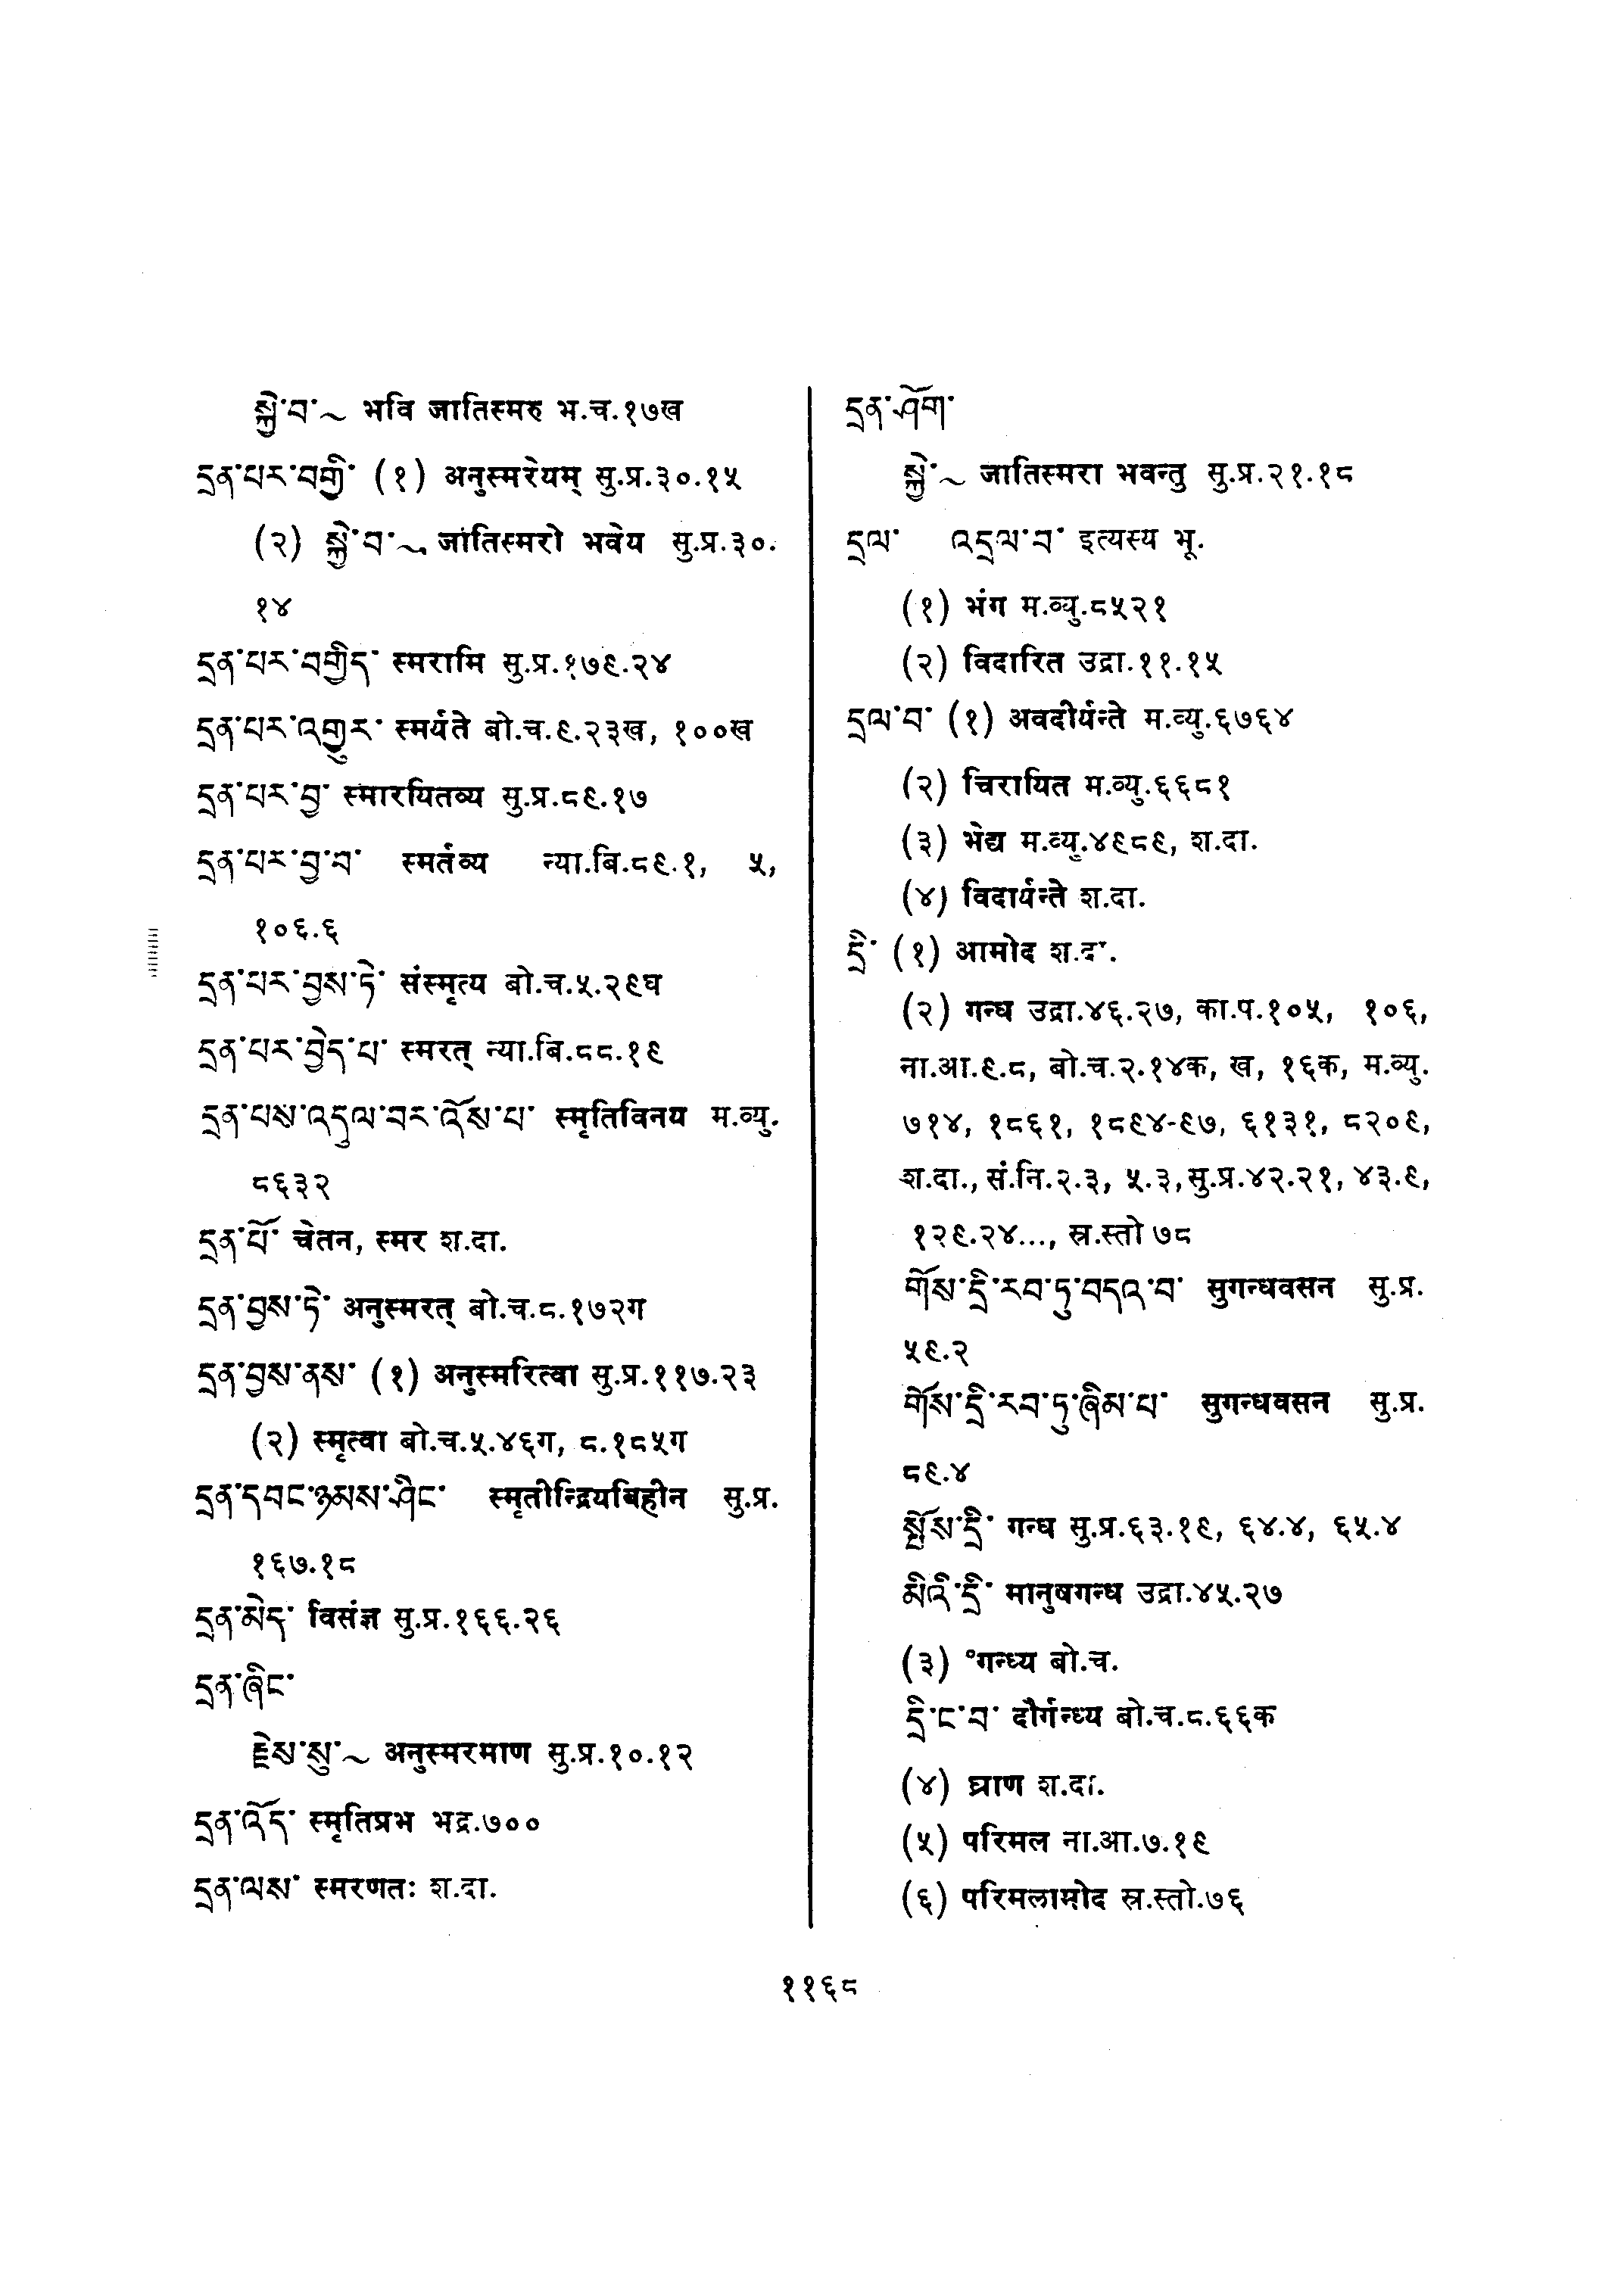 སྐྱེ་བ་~ भवि जातिस्मरु भ.च.१७ख
དྲན་པར་བགྱི་ (१) अनुस्मरेयम् सु.प्र.३०.१५
(२) སྐྱེ་བ་~ जातिस्मरो भवेय सु.प्र.३०.
१४
དྲན་པར་བགྱིད་ स्मरामि सु.प्र.१७९.२४
དྲན་པར་འགྱུར་ स्मर्यते बो.च.९.२३ख, १००ख
དྲན་པར་བྱ་ स्मारयितव्य सु.प्र.८९.१७
དྲན་པར་བྱ་བ་ स्मर्तव्य न्या.बि.८९.१, ५,
१०६.६
དྲན་པར་བྱས་ཏེ་ संस्मृत्य बो.च.५.२९घ
དྲན་པར་བྱེད་པ་ स्मरत् न्या.बि.८८.१९
དྲན་པས་འདུལ་བར་འོས་པ་ स्मृतिविनय म.व्यु.
८६३२
དྲན་པོ་ चेतन, स्मर श.दा.
དྲན་བྱས་ཏེ་ अनुस्मरत् बो.च.८.१७२ग
དྲན་བྱས་ནས་ (१) अनुस्मरित्वा सु.प्र.११७.२३
(२) स्मृत्वा बो.च.५.४६ग, ८.१८५ग
དྲན་དབང་ཉམས་ཤིང་ स्मृतीन्द्रियबिहीन सु.प्र.
१६७.१८
དྲན་མེད་ विसंज्ञ सु.प्र.१६६.२६
དྲན་ཞིང་
རྗེས་སུ་~ अनुस्मरमाण सु.प्र.१०.१२
དྲན་འོད་ स्मृतिप्रभ भद्र.७००
དྲན་ལས་ स्मरणतः श.दा.
དྲན་ཤོག་
སྐྱེ་~ जातिस्मरा भवन्तु सु.प्र.२१.१८
དྲལ་ འདྲལ་བ་ इत्यस्य भू.
(१) भंग म.व्यु.८५२१
(२) विदारित उद्रा.११.१५
དྲལ་བ་ (१) अवदीर्यन्ते म.व्यु.६७६४
(२) चिरायित म.व्यु.६६८१
(३) भेद्य म.व्यु.४९८९, श.दा.
(४) विदार्यन्ते श.दा.
དྲི་ (१) आमोद श.दा.
(२) गन्ध उद्रा.४६.२७, का.प.१०५, १०६,
ना.आ.९.८, बो.च.२.१४क, ख, १६क, म.व्यु.
७१४, १८६१, १८९४-९७, ६१३१, ८२०९,
श.दा., सं.नि.२.३, ५.३, सु.प्र.४२.२१, ४३.९,
१२९.२४..., स्र.स्तो ७८
གོས་དྲི་རབ་ཏུ་བདའ་བ་ सुगन्धवसन सु.प्र.
५९.२
གོས་དྲི་རབ་ཏུ་ཞིམ་པ་ सुगन्धवसन सु.प्र.
८९.४
སྤོས་དྲི་ गन्ध सु.प्र.६३.१९, ६४.४, ६५.४
མིའི་དྲི་ मानुषगन्ध उद्रा.४५.२७
(३) °गन्ध्य बो.च.
དྲི་ང་བ་ दौर्गन्ध्य बो.च.८.६६क
(४) घ्राण श.दा.
(५) परिमल ना.आ.७.१९
(६) परिमलामोद स्र.स्तो.७६
११६८